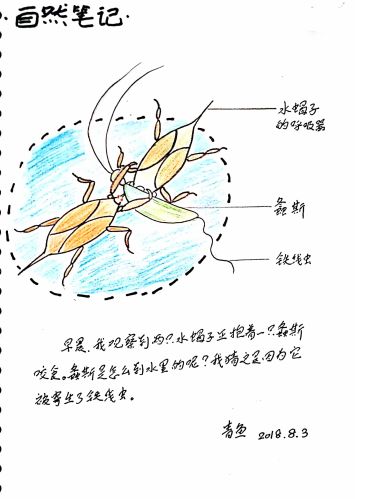 自然笔记.
水蝎子
的呼吸器
螽斯
铁线虫
早晨,我观察到两只水蝎子正抱着一只螽斯
咬食。螽斯是怎么到水里的呢?我猜是因为它
被寄生了铁线虫。
青鱼 2018.8.3